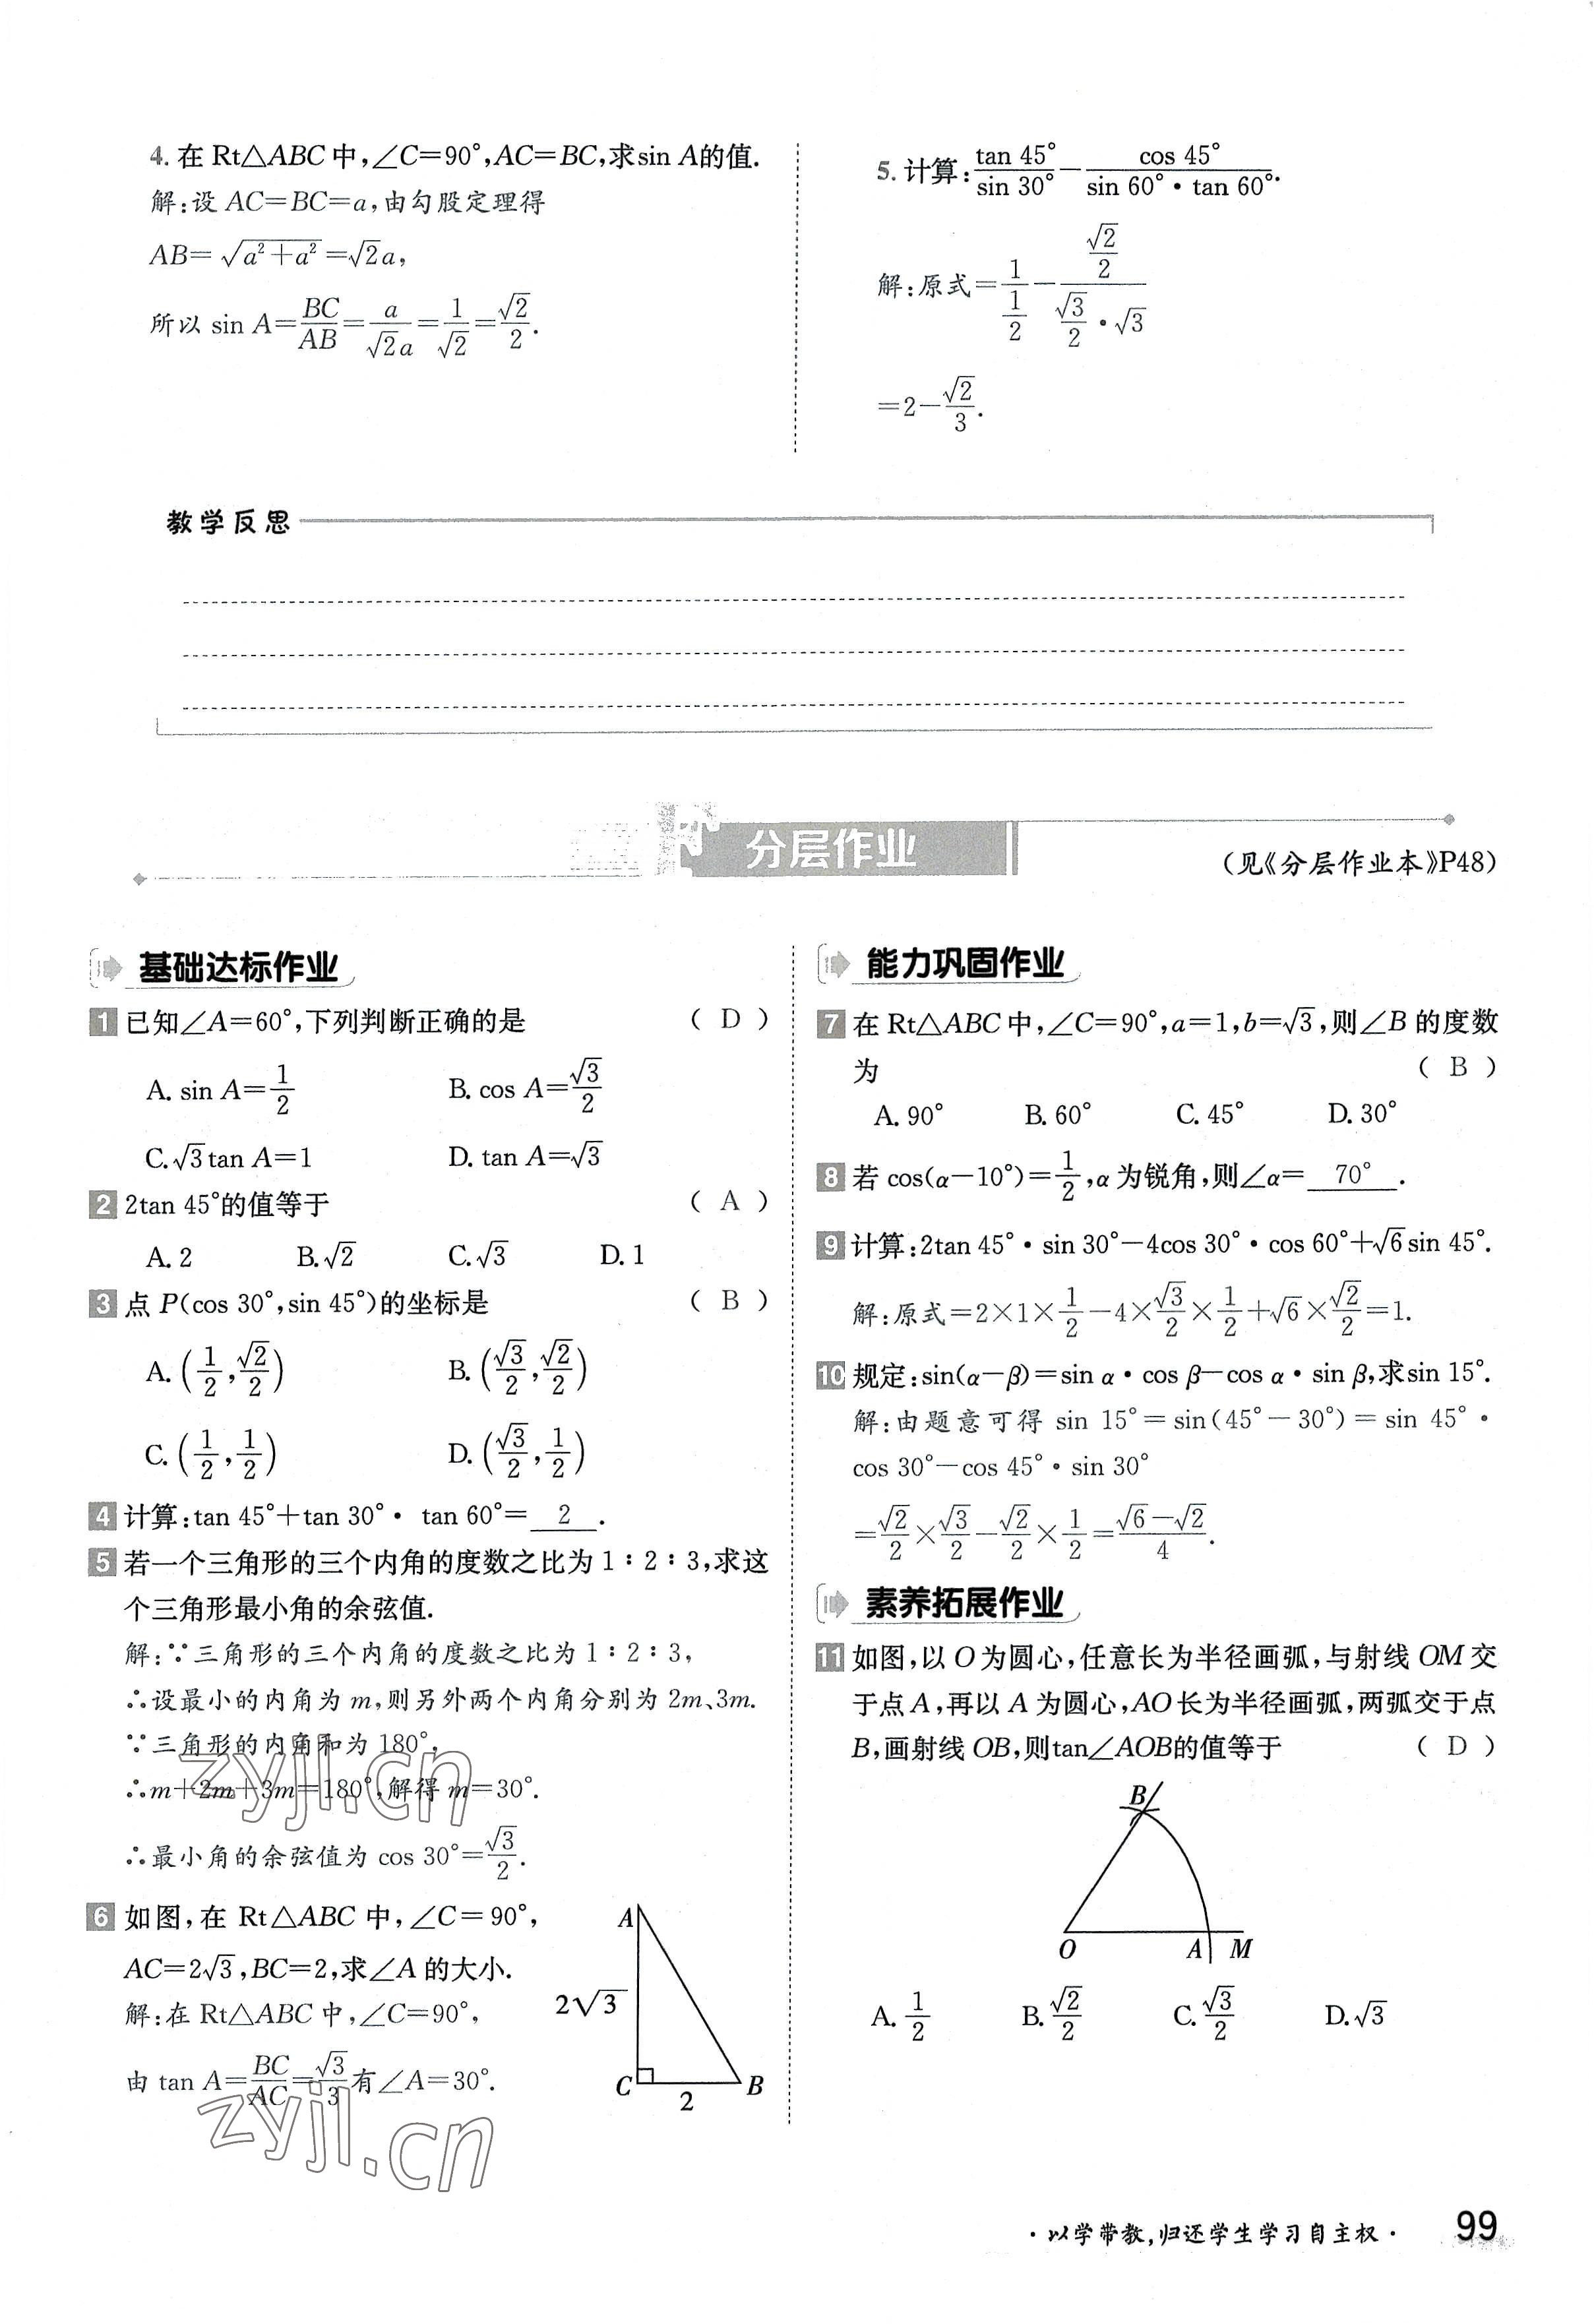 4. 在 Rt△ABC 中,∠C=90°,AC=BC,求sin A的值.
解:设 AC=BC=a,由勾股定理得
AB=√(a²+a²)=√2a,
所以 sin A=BC/AB=a/(√2a)=1/√2=√2/2.
5. 计算:tan 45°/sin 30°-cos 45°/(sin 60°·tan 60°).
解:原式=1/(1/2)-(√2/2)/(√3/2·√3)
=2-√2/3.
教学反思
分层作业
(见《分层作业本》P48)
基础达标作业
1 已知∠A=60°,下列判断正确的是 ( D )
A. sin A=1/2 B. cos A=√3/2
C. √3tan A=1 D. tan A=√3
2 2tan 45°的值等于 ( A )
A. 2 B. √2 C. √3 D. 1
3 点 P(cos 30°,sin 45°)的坐标是 ( B )
A. (1/2,√2/2) B. (√3/2,√2/2)
C. (1/2,1/2) D. (√3/2,1/2)
4 计算:tan 45°+tan 30°· tan 60°= 2 .
5 若一个三角形的三个内角的度数之比为 1∶2∶3,求这
个三角形最小角的余弦值.
解:∵三角形的三个内角的度数之比为 1∶2∶3,
∴设最小的内角为 m,则另外两个内角分别为 2m、3m.
∵三角形的内角和为 180°,
∴m+2m+3m=180°,解得 m=30°.
∴最小角的余弦值为 cos 30°=√3/2.
6 如图,在 Rt△ABC 中,∠C=90°,
AC=2√3,BC=2,求∠A 的大小.
解:在 Rt△ABC 中,∠C=90°,
由 tan A=BC/AC=√3/3有∠A=30°.
A
2√3
C
2
B
能力巩固作业
7 在 Rt△ABC 中,∠C=90°,a=1,b=√3,则∠B 的度数
为 ( B )
A. 90° B. 60° C. 45° D. 30°
8 若 cos(α-10°)=1/2,α为锐角,则∠α= 70° .
9 计算:2tan 45°·sin 30°-4cos 30°·cos 60°+√6sin 45°.
解:原式=2×1×1/2-4×√3/2×1/2+√6×√2/2=1.
10 规定:sin(α-β)=sin α·cos β-cos α·sin β,求sin 15°.
解:由题意可得 sin 15°=sin(45°-30°)=sin 45°·
cos 30°-cos 45°·sin 30°
=√2/2×√3/2-√2/2×1/2=(√6-√2)/4.
素养拓展作业
11 如图,以 O 为圆心,任意长为半径画弧,与射线 OM 交
于点 A,再以 A 为圆心,AO 长为半径画弧,两弧交于点
B,画射线 OB,则tan∠AOB的值等于 ( D )
B
O A M
A. 1/2 B. √2/2 C. √3/2 D. √3
zyjl.cn
zyjl.cn
·以学带教,归还学生学习自主权· 99